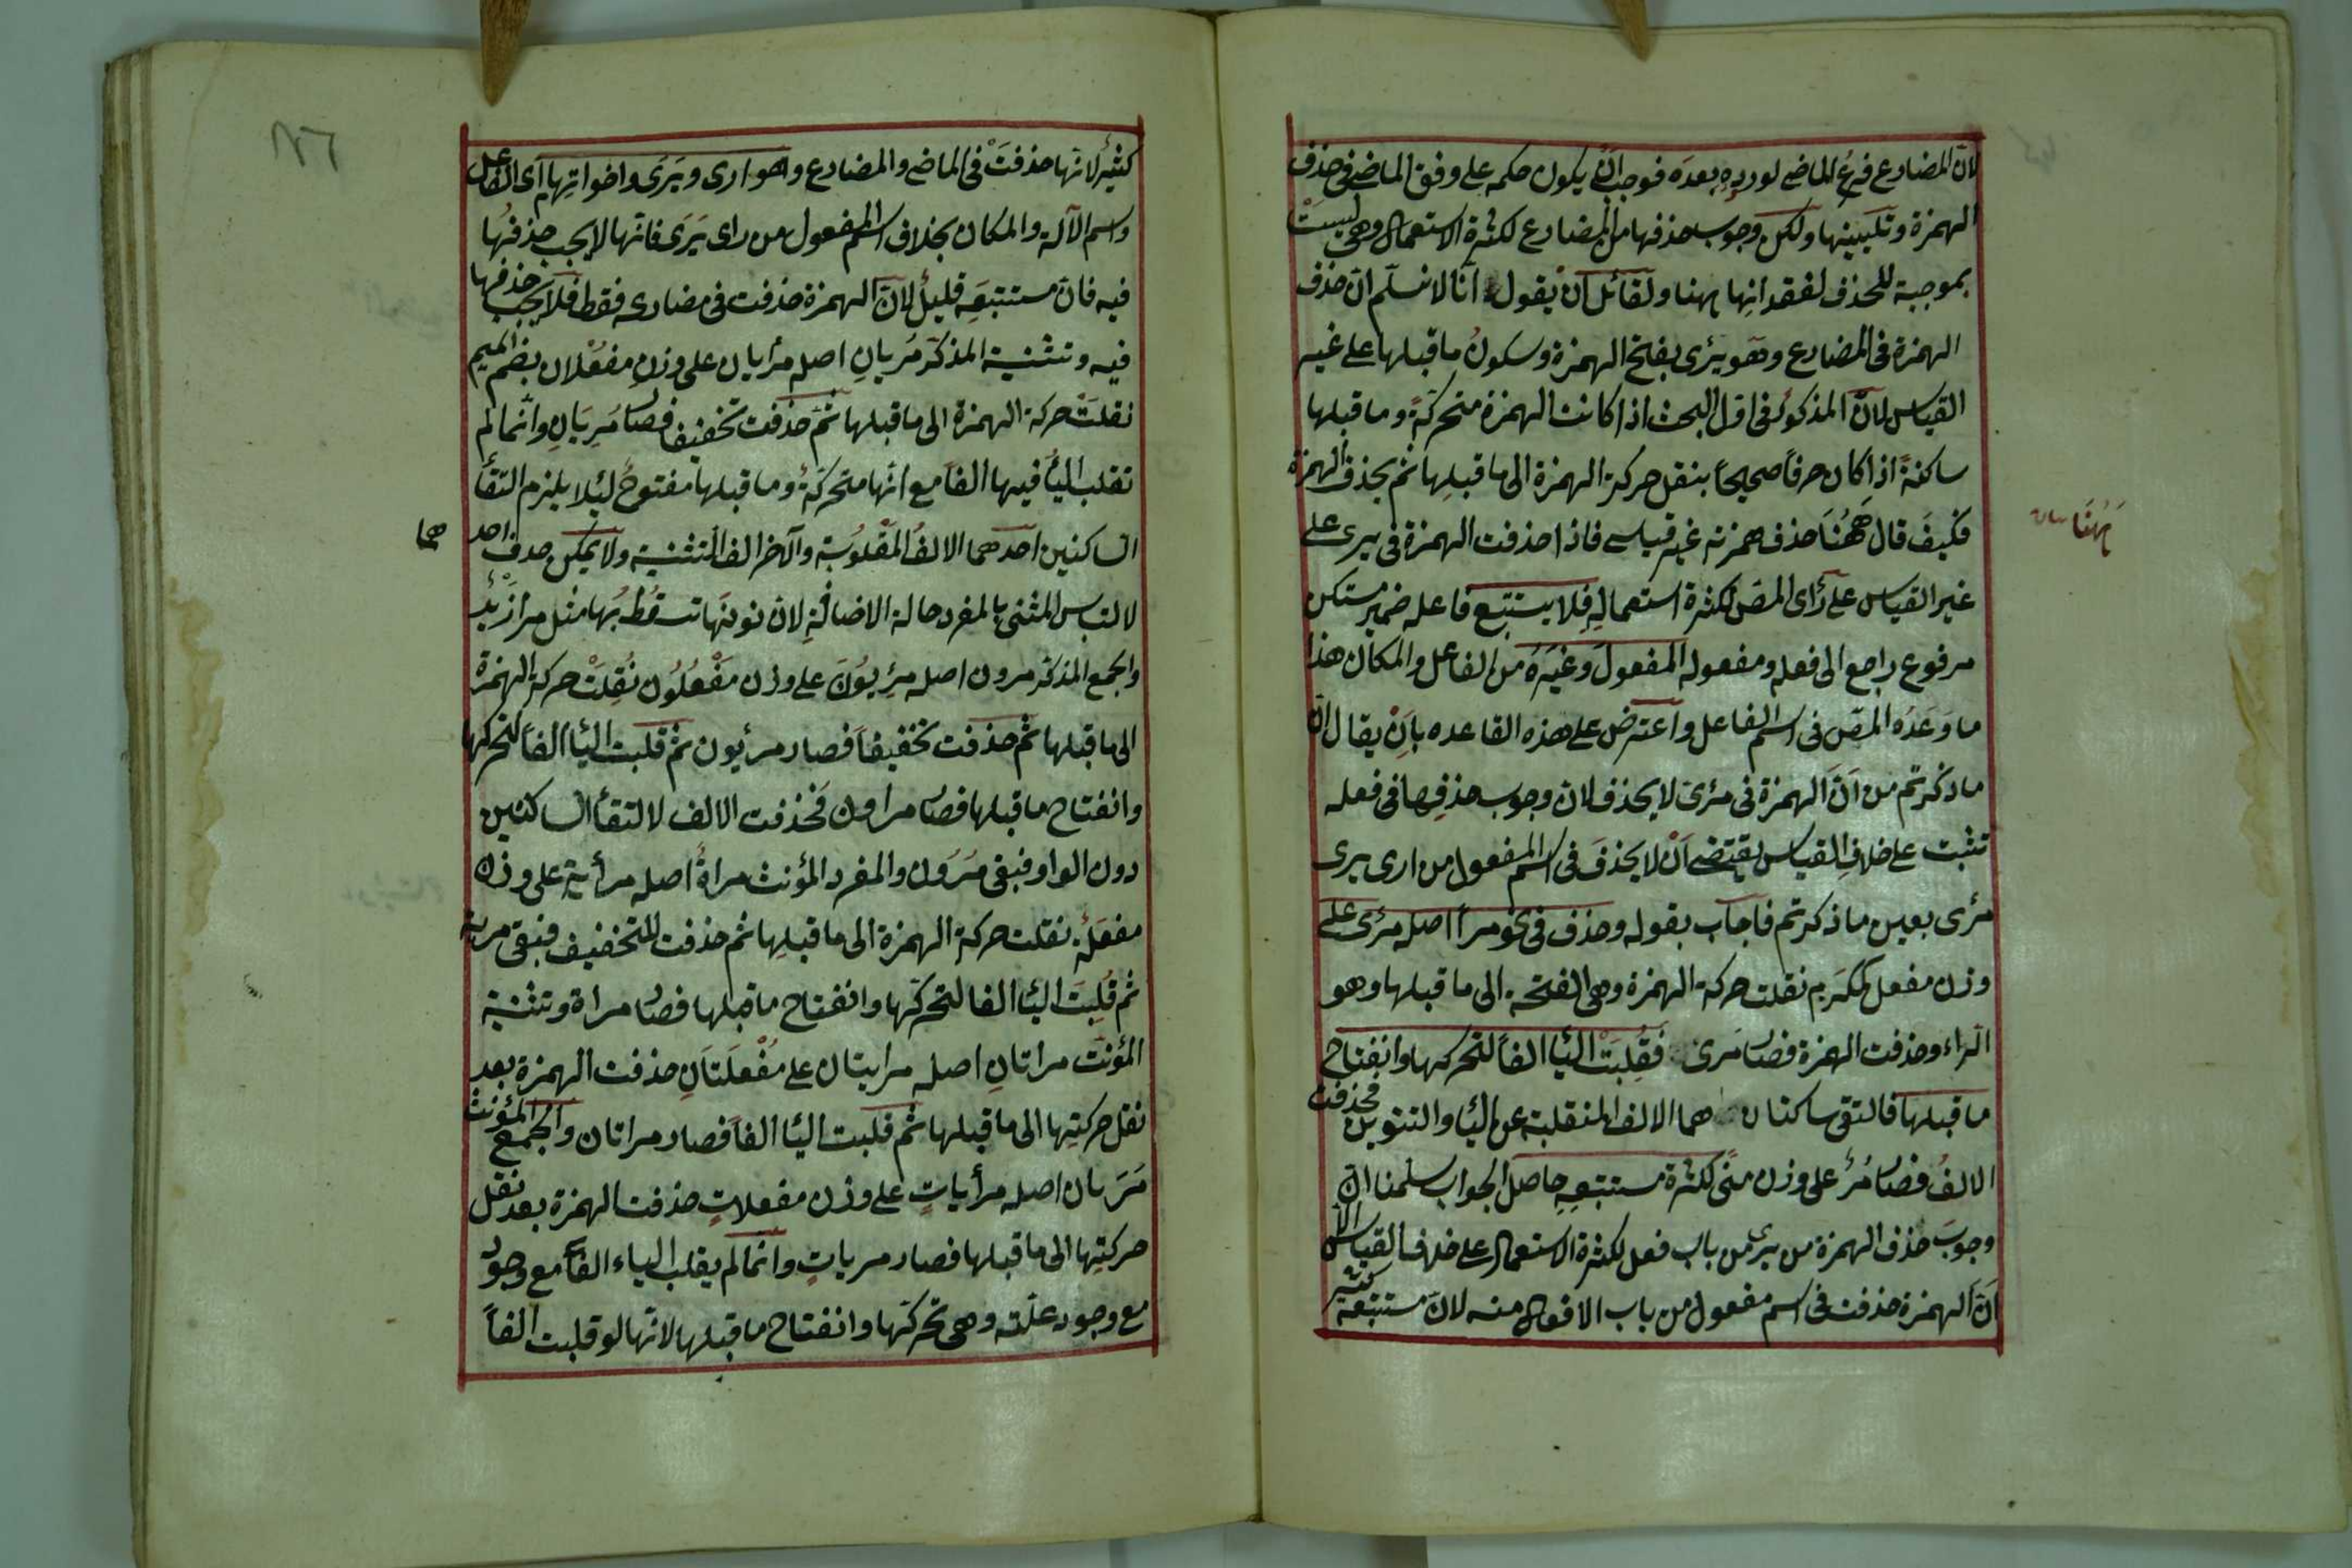 لانّ المضارع فرعُ الماضى لورده بعده فوجب انْ يكون حكمه على وفق الماضى فى حذف
الهمزة وتليينها ولكن وجوب حذفها من المضارع لكثرة الاستعمال وهى ليستْ
بموجبة للحذف لفقدانِها ههنا ولقائل انْ يقول انّا لا نسلّم انّ حذف
الهمزة فى المضارع وهو يرئى بفتح الهمزة وسكونُ ما قبلها على غير
القياس لانّ المذكورُ فى اوّل البحث اذا كانت الهمزة متحركةً وما قبلها
ساكنةً اذا كان حرفاً صحيحاً ينقل حركة الهمزة الى ما قبلِها ثم يحذف الهمزة
فكيفَ قال ههُنَا حذف همزته غير قياسى فاذا حذفت الهمزة فى يرى على
ههُنَا
غير القياس على رأى المص لكثرة استعمالِهِ فلا يستتبع فاعله ضمير مستكن
مرفوع راجع الى فعله ومفعوله المفعولَ وغيْرَهُ من الفاعل والمكان هذا
ما وَعَدَه المصّ فى اسم الفاعل واعترض على هذه القاعده بِاَنْ يقال انّ
ما ذكرتم من انّ الهمزة فى مرئى لا يحذف لان وجوب حذفِها فى فعله
تثبت على خلافِ القياس يقتضى اَنْ لا يحذفَ فى اسم المفعول من ارى يرى
مرئى بعين ما ذكرتم فاجاب بقوله وحذف فى نحو مراً اصله مرئى على
وزن مفعل كمكرَم نقلت حركة الهمزة وهى الفتحة الى ما قبلها وهو
الراء وحذفت الهمزة فصار مَرى فَقُلِبَتْ اليٰا الفاً لتحركها وانفتاح
ما قبلها فالتقى ساكنان هما الالف المنقلبة عن اليٰا والتنوين فحذفت
الالفُ فصار مُرً على وزن منًى لكثرة مستتبعِهِ حاصل الجواب سلّمنا انّ
وجوبَ حذف الهمزة من يرئ من باب فعل لكثرة الاستعمال على خلاف القياس الّا
اَنّ الهمزة حذفت فى اسم مفعول من باب الافعال منه لانّ مستتبعه كثير
١٢٦
كثيرٌ لانّها حذفتْ فى الماضى والمضارع وهو ارى ويَرَى واخواتِها اى الفاعل
واسم الآلة والمكان بخلاف اسم المفعول من راى يَرَى فانّها لا يجب حذفُها
فيه فانّ مستتبعِه قليلٌ لانّ الهمزة حذفت فى مضارعه فقط فلا يجب حذفها
فيه وتثنية المذكّر مُريانِ اصله مرأيان على وزنِ مفعْلان بضم الميم
نقلتْ حركة الهمزة الى ما قبلها ثمّ حذفت تخفيفا فصار مُريَانِ وانّما لم
تقلب اليٰأ فيها الفاً مع انّها متحركةٌ وما قبلها مفتوحٌ لئلا يلزم التقأ
الساكنين احدهما الالفُ المقلوبَة والآخر الف التثنية ولا يمكن حدف احد
هما
لالتباس المثنى بالمفرد حالة الاضافةِ لانّ نونَها تسقُط بها مثل مرا زيْد
والجمع المذكّر مرون اصله مرْيِيُونَ على وزن مَفْعُلُون نُقِلتْ حركة الهمزة
الى ما قبلها ثم حذفت تخفيفاً فصار مريون ثم قلبت اليٰا الفاً لتحركها
وانفتاح ما قبلها فصار مراون فحذفت الالف لالتقأ الساكنين
دون الواو فبقى مرَوْن والمفرد المؤنث مراةً اصله مرأية على وزن
مفعَلةٌ نقلت حركة الهمزة الى ما قبلِها ثم حذفت للتخفيف فبقى مرية
ثم قُلِبَت اليٰا الفا لتحركها وانفتاح ما قبلها فصار مراة وتثنية
المؤنث مراتانِ اصله مرايتان على مُفْعلَتَانِ حذفت الهمزة بعد
نقل حركتِها الى ما قبلها ثم قلبت اليٰا الفاً فصار مراتان والجمع المؤنث
مَرَيات اصله مرأياتٍ على وزن مفعلاتٍ حذفت الهمزة بعد نقل
حركتِها الى ما قبلها فصار مرياتٍ وانّما لم يقلب الياء الفاً مع وجود
مع وجود علّته وهى تحركّها وانفتاح ما قبلها لانّها لو قلبت الفاً